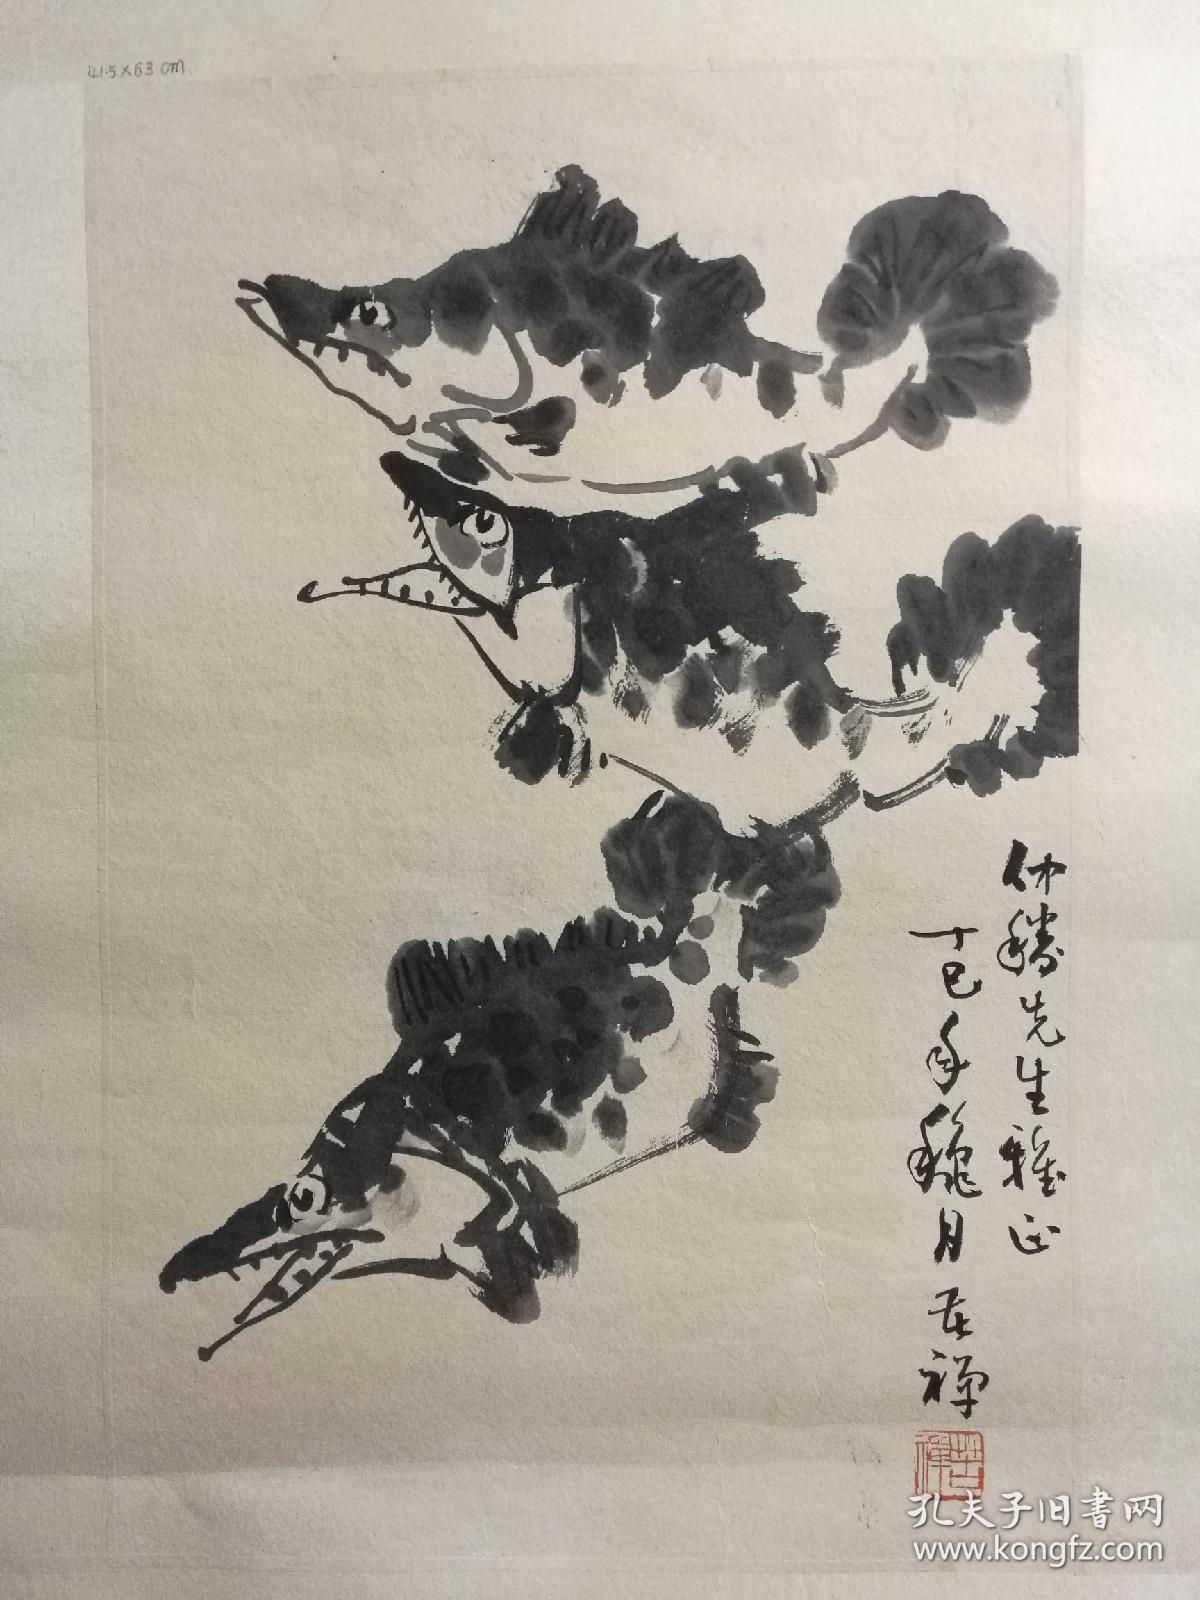 41.5×63 cm
仲勝先生雅正
丁巳年龝月苦禅
苦禅
孔夫子旧书网
www.kongfz.com